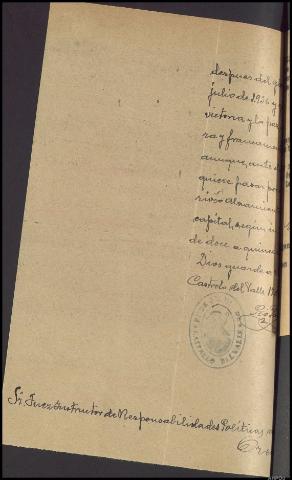 despues del
julio de 1936 y
victoria y la
ra y francamen
aunque, ante
quiere pasar por
rioso Alzamien
capital, segun
de doce a quince
Dios guarde a
Castrelo del Valle
Sr. Juez Instructor de Responsabilidades Políticas